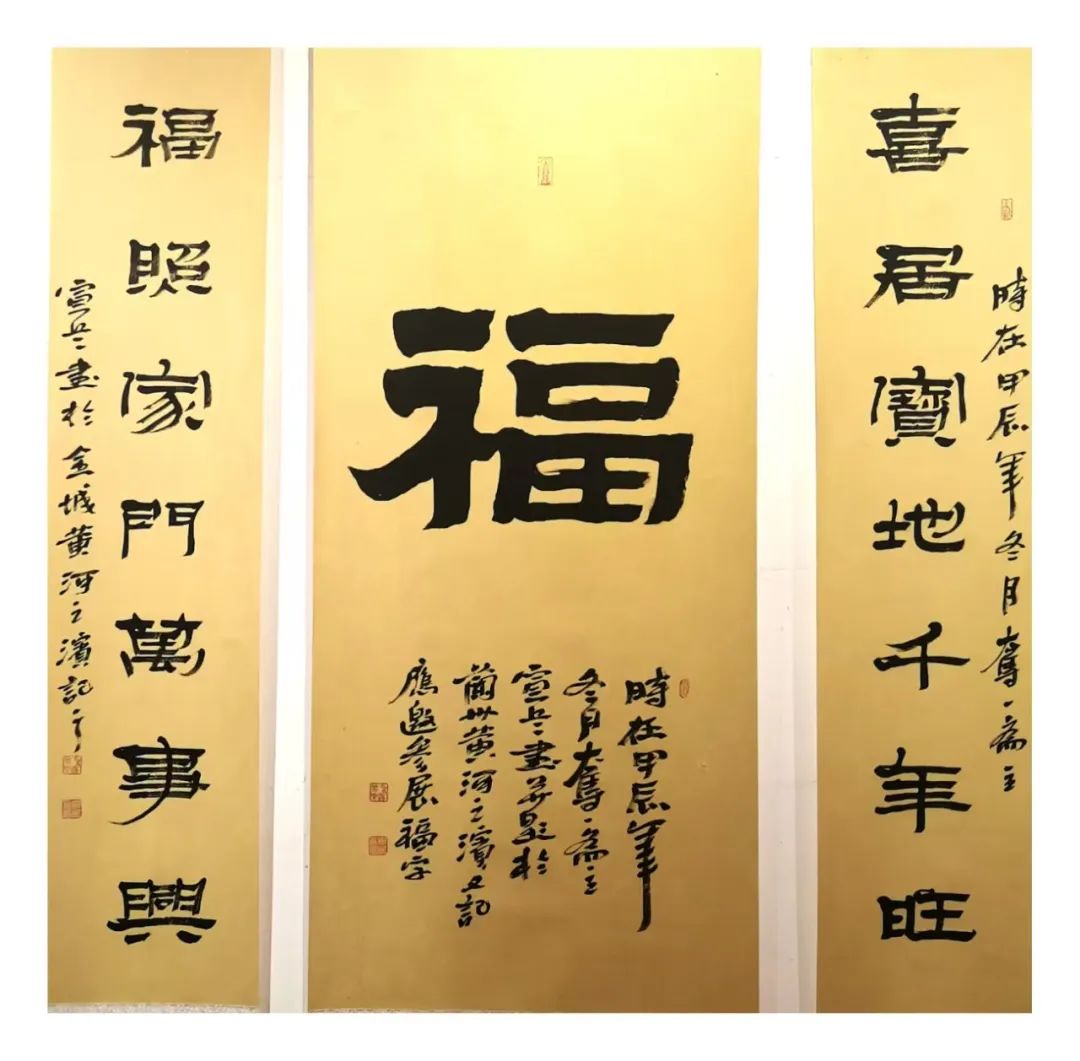 時在甲辰年冬月齋主
喜居寶地千年旺
福
時在甲辰年
冬月齋主
宣兵書並題於
蘭州黄河之濱又記
應邀參展福字
福照家門萬事興
宣兵書於金城黄河之濱記之